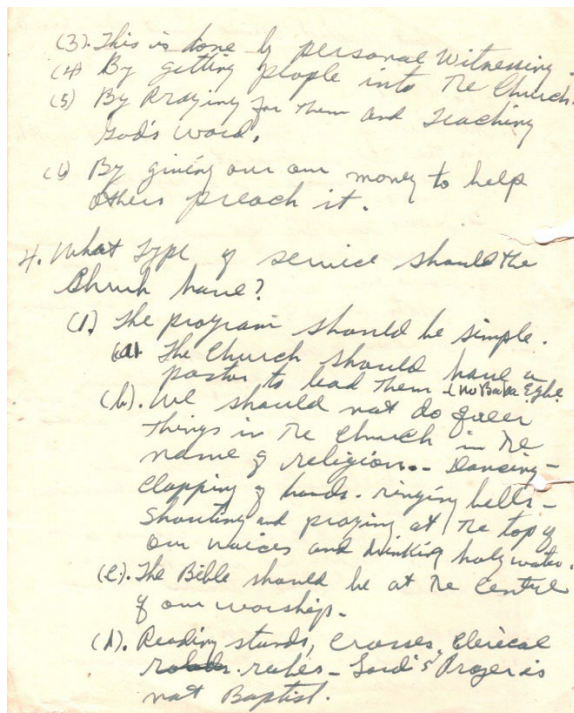 (3). This is done by personal Witnessing.
(4) By getting people into The Church.
(5) By Praying for them and Teaching
God's word.
(6) By giving our our money to help
others preach it.
4. What Type of service should the
Church have?
(1) The program should be simple.
(a) The Church should have a
pastor to lead them & no Baba Egbe
(b). We should not do queer
things in The Church in The
name of religion.- Dancing -
Clapping of hands - ringing bells -
Shouting and praying at The top of
our voices and drinking holy water.
(c). The Bible should be at The Centre
of our worship -
(d). Reading stands, Crosses, Clerical
robes - Lord's Prayer is
not Baptist.